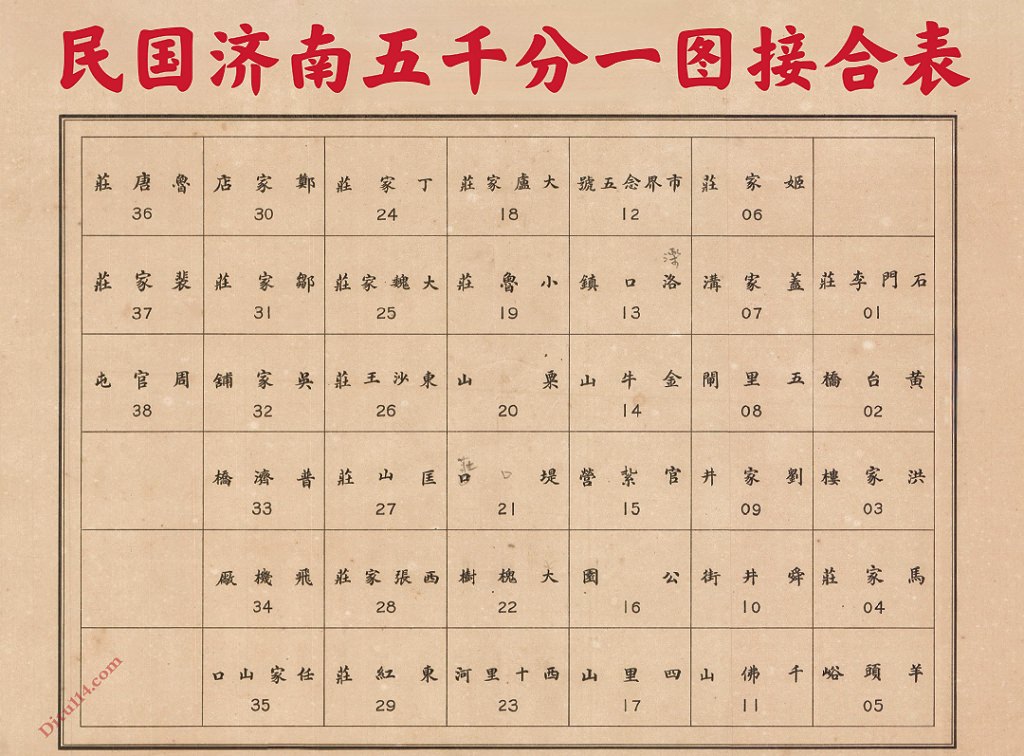 民国济南五千分一图接合表
魯唐莊
36
鄭家店
30
丁家莊
24
大盧家莊
18
市界念五號
12
姬家莊
06
裴家莊
37
鄒家莊
31
大魏家莊
25
小魯莊
19
濼
洛口鎮
13
蓋家溝
07
石門李莊
01
周官屯
38
吳家鋪
32
東沙王莊
26
粟山
20
金牛山
14
五里閘
08
黃台橋
02
普濟橋
33
匡山莊
27
莊
堤口口
21
官紮營
15
劉家井
09
洪家樓
03
飛機廠
34
西張家莊
28
大槐樹
22
公園
16
舜井街
10
馬家莊
04
任家山口
35
東紅莊
29
西十里河
23
四里山
17
千佛山
11
羊頭峪
05
Ditu114.com